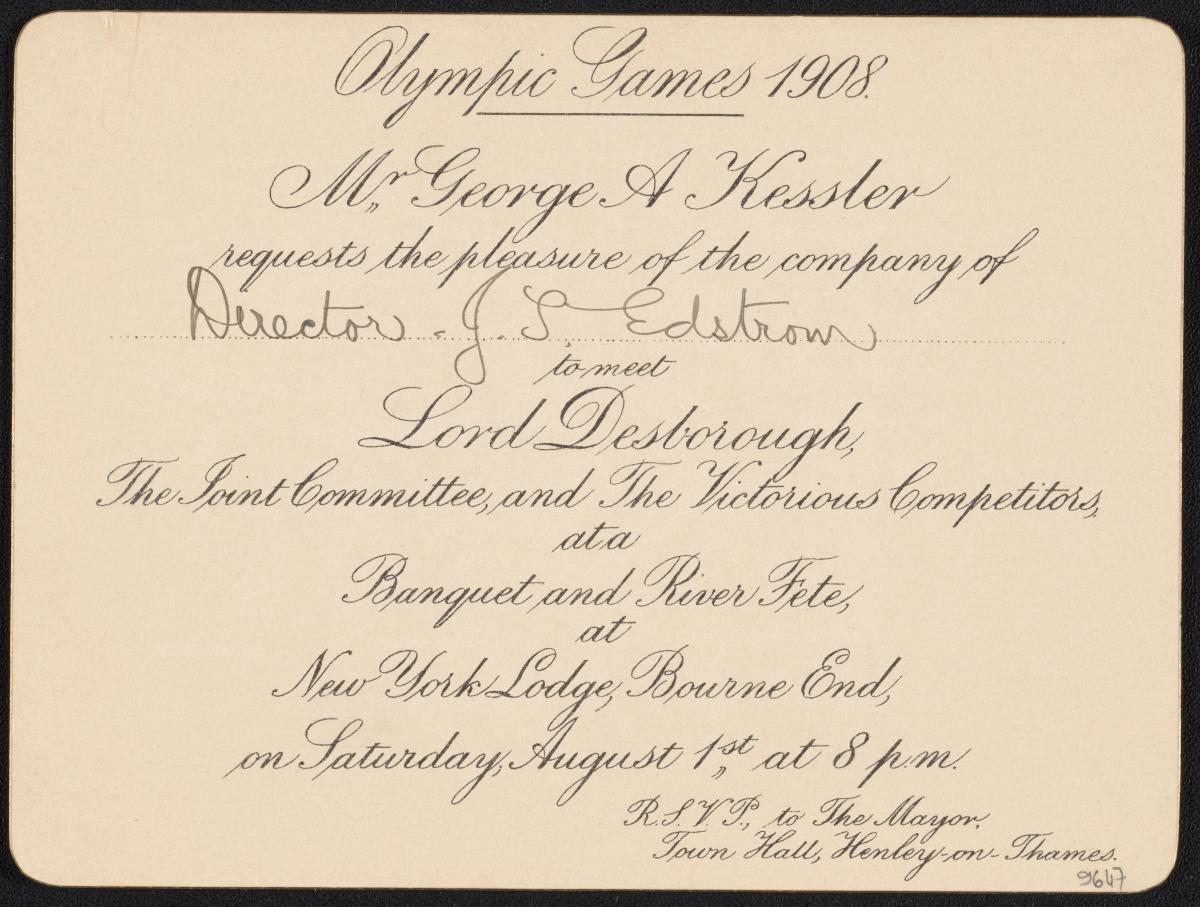 Olympic Games 1908.
Mr George A Kessler
requests the pleasure of the company of
Director. J. S. Edstrom
to meet
Lord Desborough,
The Joint Committee, and The Victorious Competitors,
at a
Banquet and River Fete,
at
New York Lodge, Bourne End,
on Saturday, August 1st at 8 p.m.
R.S.V.P., to The Mayor,
Town Hall, Henley-on-Thames.
9647